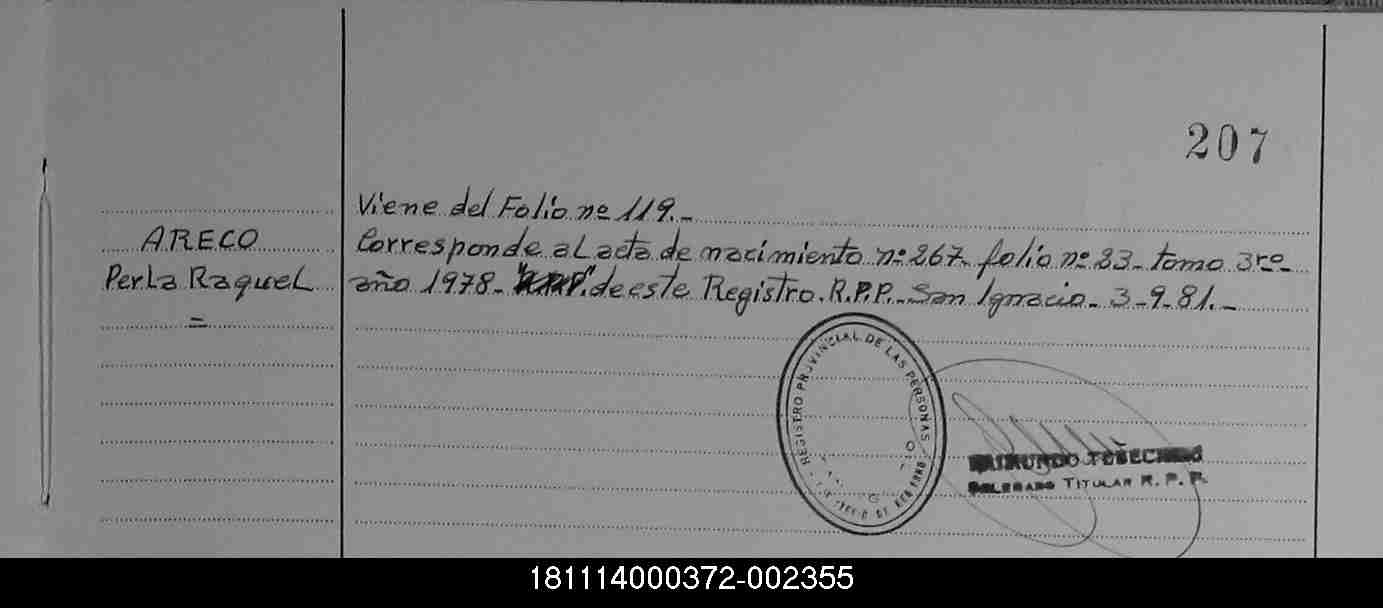 207
Viene del Folio nº 119.-
ARECO
Corresponde al acta de nacimiento nº 267- folio nº 23- tomo 3ro-
Perla Raquel
año 1978- de este Registro. R.P.P.- San Ignacio- 3-9-81.-
=
REGISTRO PROVINCIAL DE LAS PERSONAS
RAIMUNDO
TITULAR R. P. P.
181114000372-002355